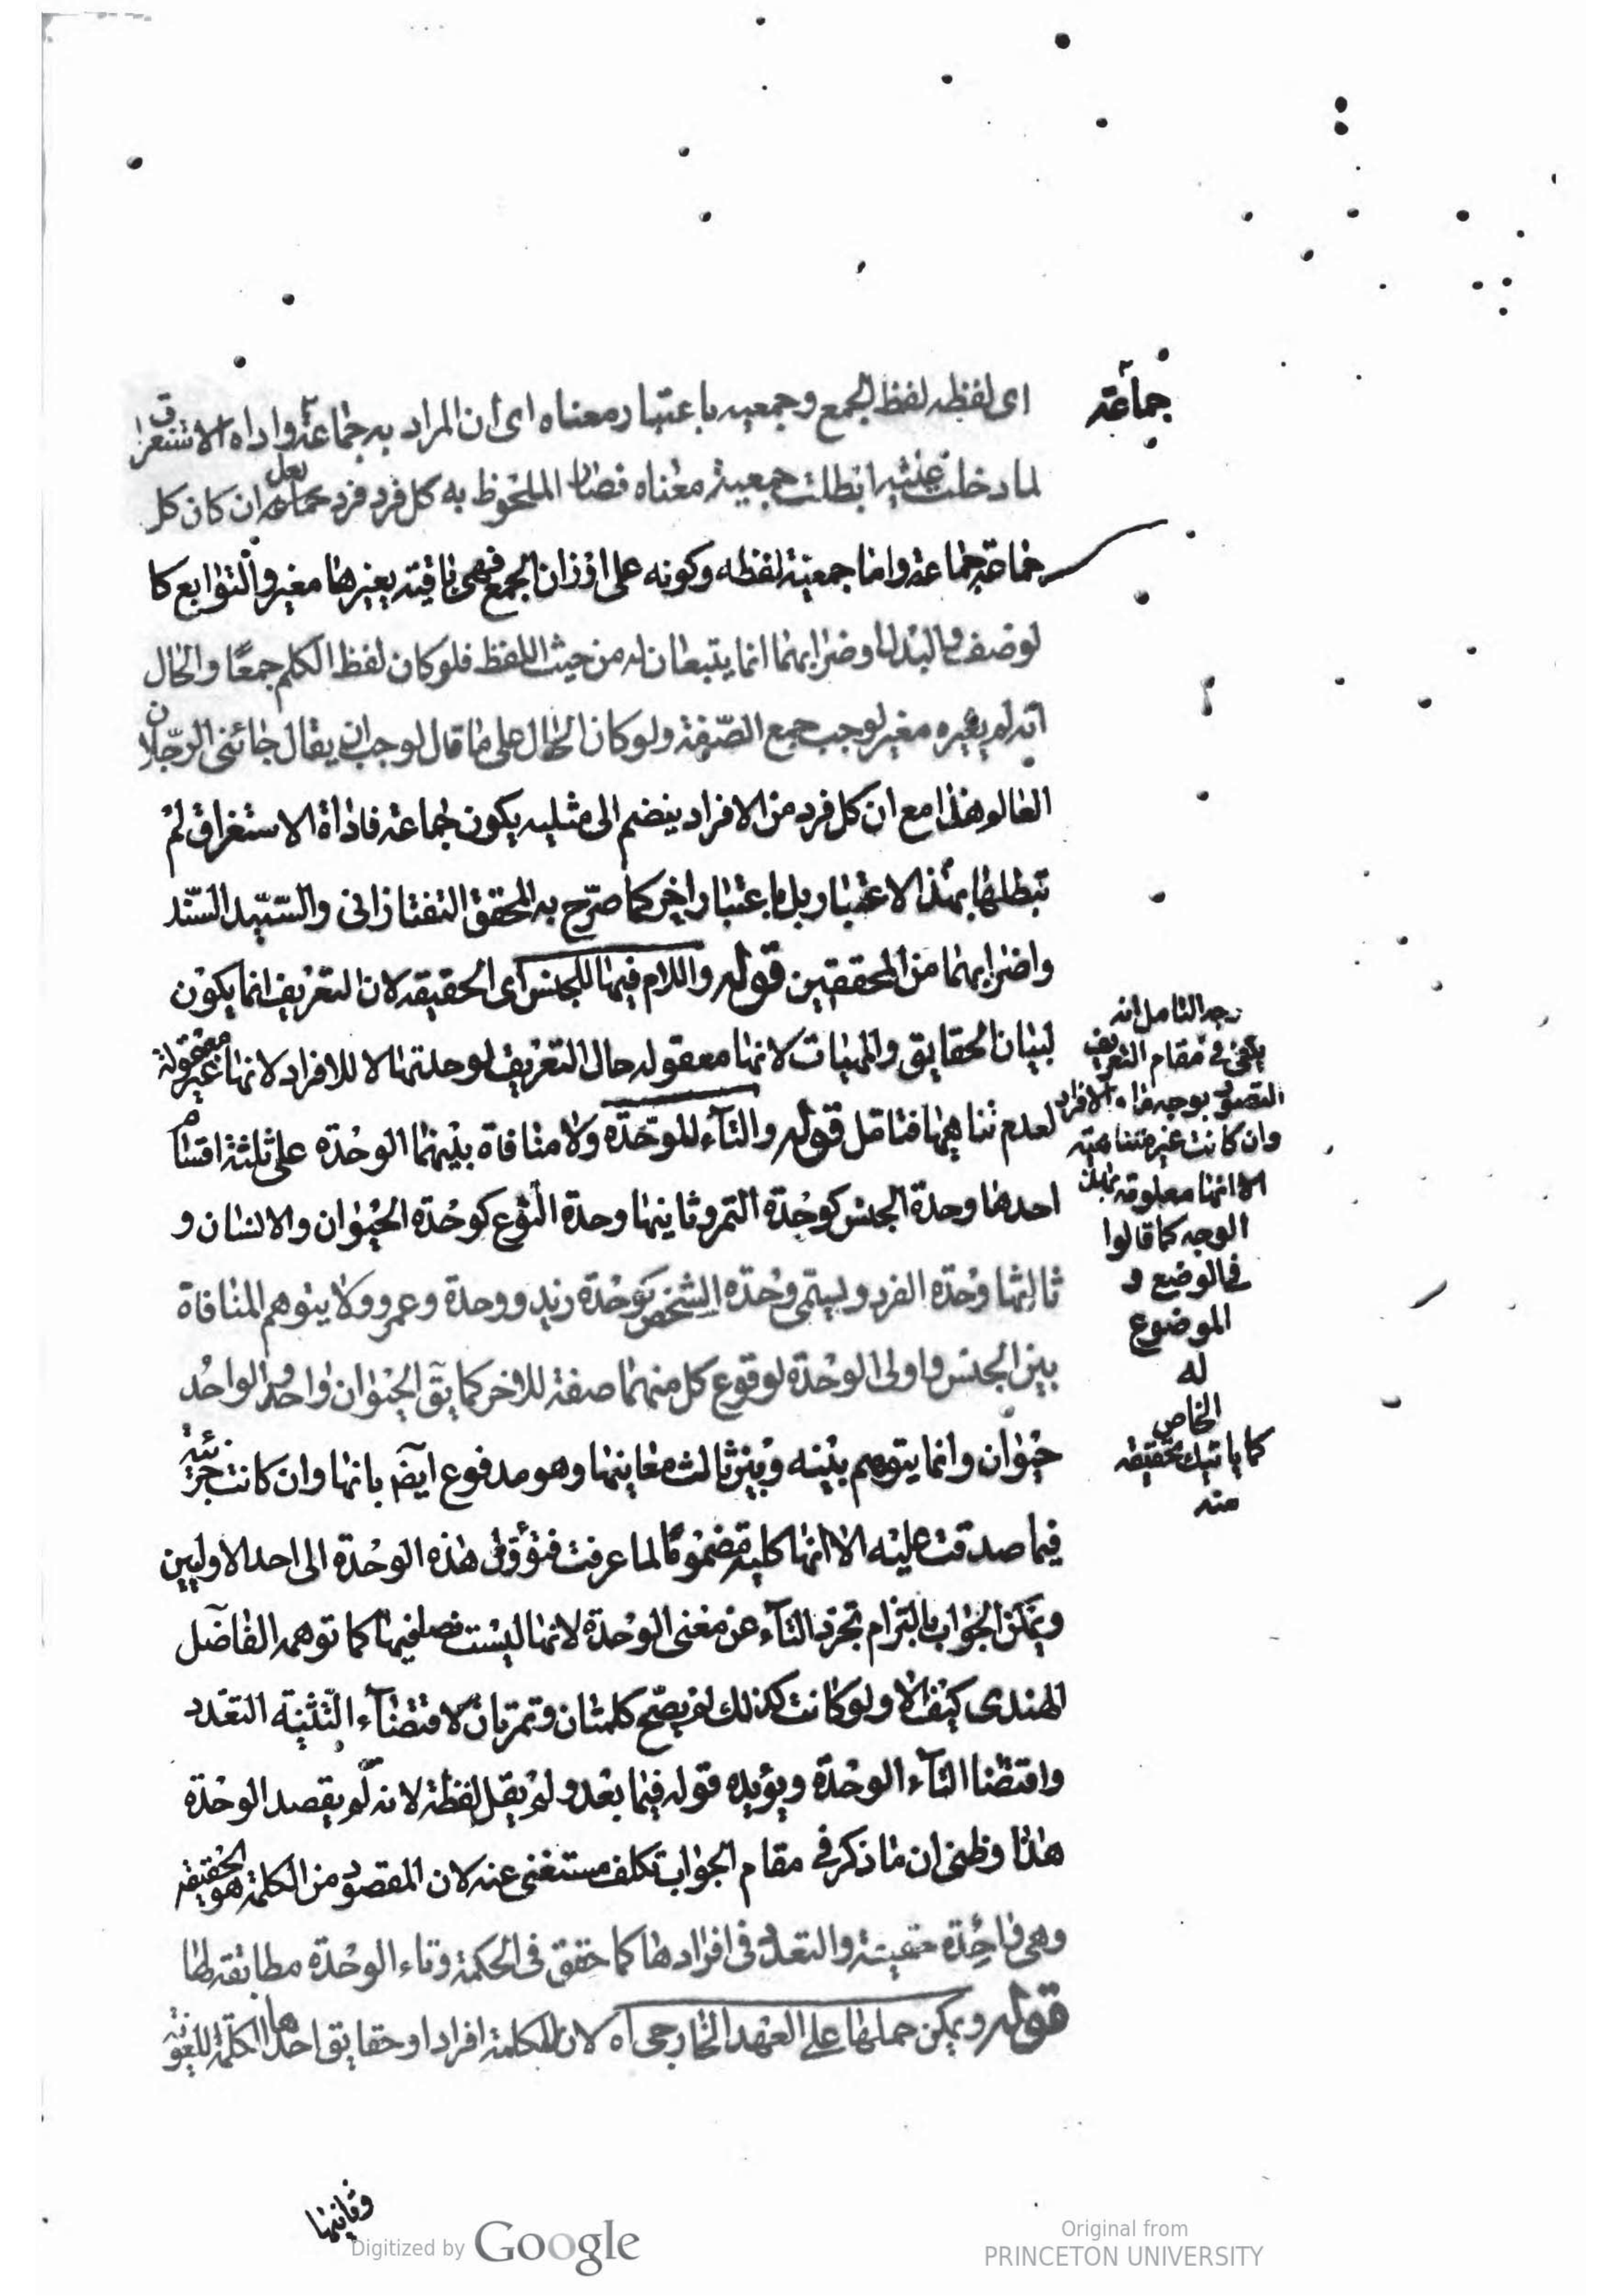 جماعة
اى لفظه لفظ الجمع وجمعيه باعتبار معناه اى ان المراد به جماعة واداه الاستغراق
لما دخلت عليه ابطلت جمعية معناه فصار الملحوظ به كل فرد فرد بعد ان كان كل
جماعة جماعة واما جمعية لفظه وكونه على اوزان الجمع فهى باقية بغيرها مغير والتوابع كا
لوصف والبدل واضرابهما انما يتبعان له من حيث اللفظ فلو كان لفظ الكلم جمعا والحال
انه لم يغيره مغير لوجب جمع الصفة ولو كان الحال على ما قال لوجب ان يقال جائنى الرجلان
العالم وهذا مع ان كل فرد من الافراد ينضم الى مثليه يكون جماعة فاداة الاستغراق لم
تبطلها بهذا الاعتبار بل باعتبار اخر كما صرح به المحقق التفتازانى والسيد السند
واضرابهما من المحققين قوله واللام فيها للجنس اى الحقيقه لان التعريف انما يكون
لبيان الحقايق والمهيات لانها معقوله حال التعريف لوحدتها لا للافراد لانها غير معقولة
لعدم تناهيها فتامل قوله والتاء للوحدة ولا منافاة بينهما الوحدة على ثلثة اقسام
احدها وحدة الجنس كوحدة التمر وثانيها وحدة النوع كوحدة الحيوان والانسان و
ثالثها وحدة الفرد ويسمى وحدة الشخص كوحدة زيد ووحدة وعمرو ولا يتوهم المنافاة
بين الجنس واولى الوحدة لوقوع كل منهما صفة للاخر كما يق الحيوان واحد والواحد
حيوان وانما يتوهم بينه وبين ثالث معانيها وهو مدفوع ايض بانها وان كانت جزئية
فيما صدقت عليه الا انها كلية مفهوما لما عرفت فتؤول هذه الوحدة الى احد الاوليين
ويمكن الجواب بالتزام تجرد التاء عن معنى الوحدة لانها ليست نصا فيها كما توهمه الفاضل
الهندى كيف لا ولو كانت كذلك لم يصح كلمتان وتمرتان لاقتضاء التثنية التعدد
واقتضا التاء الوحدة ويؤيده قوله فيما بعد ولم يقل لفظة لانه لم يقصد الوحدة
هذا وظنى ان ما ذكر فى مقام الجواب تكلف مستغنى عنه لان المقصود من الكلمة هو الحقيقه
وهى واحدة حقيقية والتعدد فى افرادها كما حقق فى الحكمة وتاء الوحدة مطابقة لها
قوله ويمكن حملها على العهد الخارجى اه لان للكلمة افرادا وحقايق احدها الكلمة اللغوية
وجه التامل انه
يكفى فى مقام التعريف
التصور بوجه ما والافراد
وان كانت غير متناهيه
الا انها معلومة بذلك
الوجه كما قالوا
فى الوضع و
الموضوع
له
الخاص
كما ياتيك تحقيقه
منه
وثانيها
Digitized by Google
Original from
PRINCETON UNIVERSITY